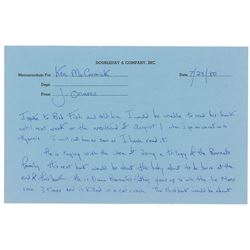 DOUBLEDAY & COMPANY, INC.
Memorandum For Ken McCormick Date 7/29/80
Dept.
From J. Onassis
I spoke to Bob Fish and told him I would be unable to read his book
until next week or the weekend of August 1 when I go on vacation to
. I will call him as soon as I have read it.
He is toying with the idea of doing a trilogy of the
family. His next book would be about the baby about to be born at the
end of this book. He is born grows up to win the Le Mans
race 3 times and is killed in a car crash. The third book would be about